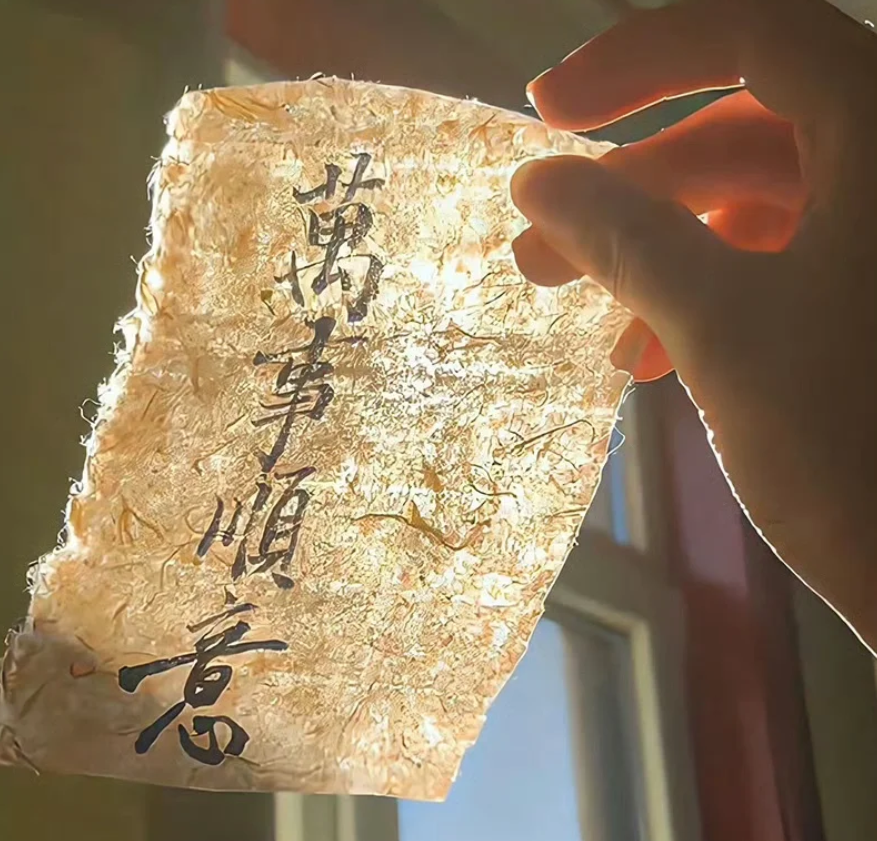 萬事順意